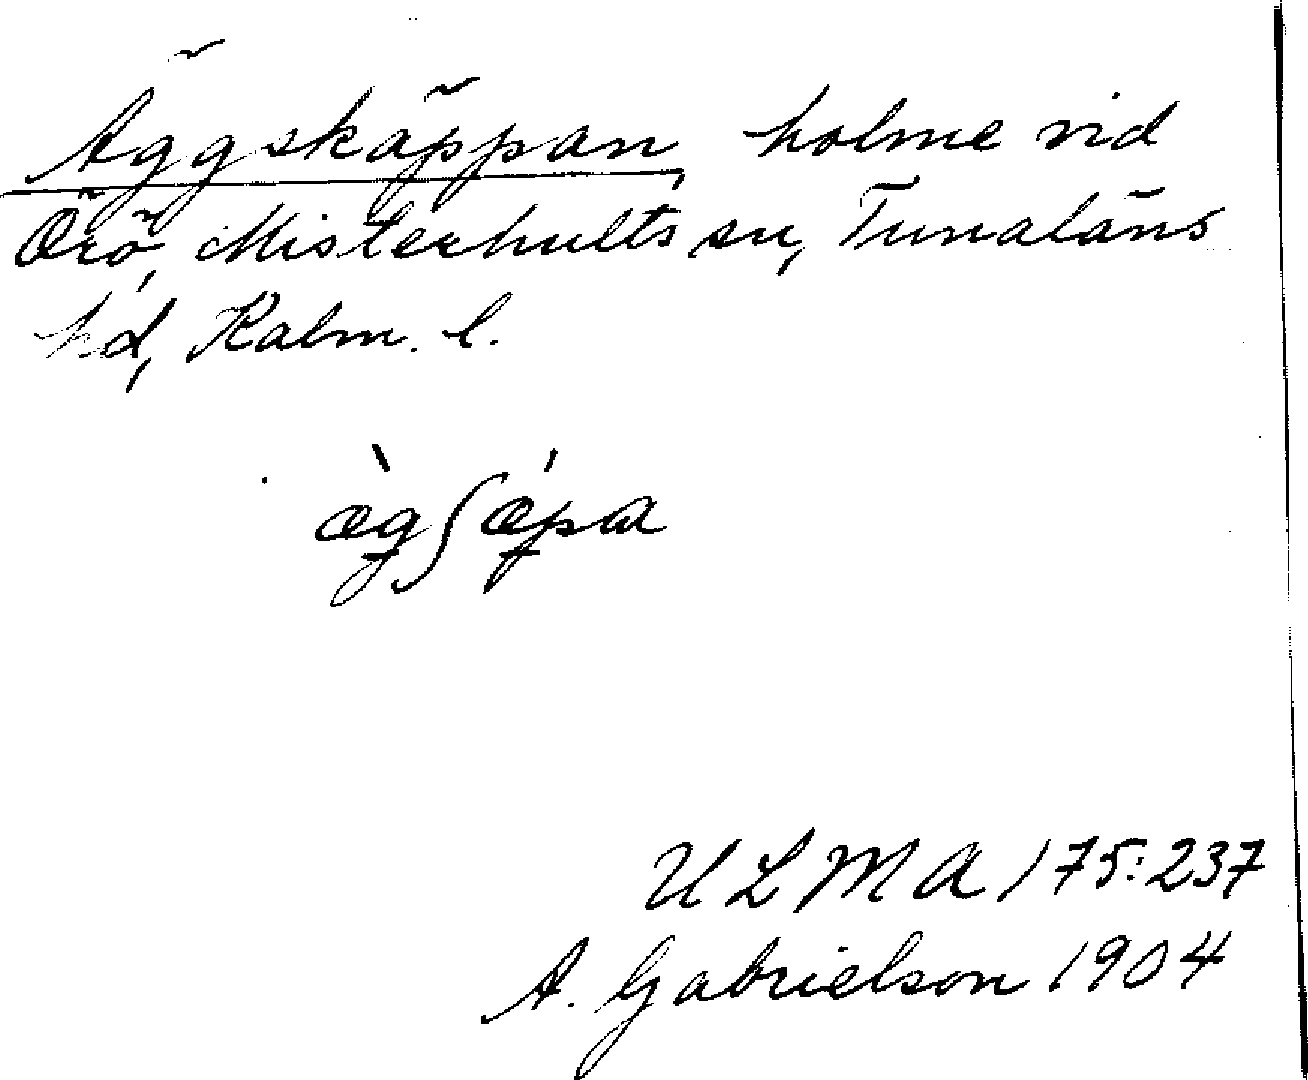 Äggskäppan, holme vid
Örö, Misterhults sn, Tunaläns
hd, Kalm. l.
æ̀gʃǽpa
ULMA 175:237
A. Gabrielson 1904